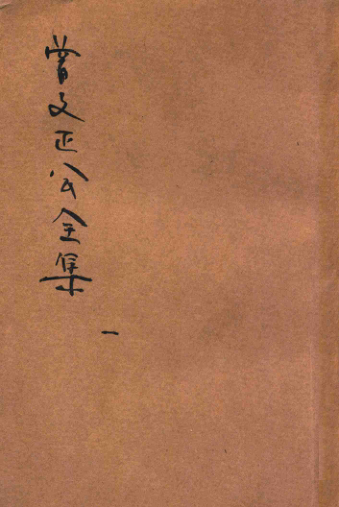 曾文正公全集
一